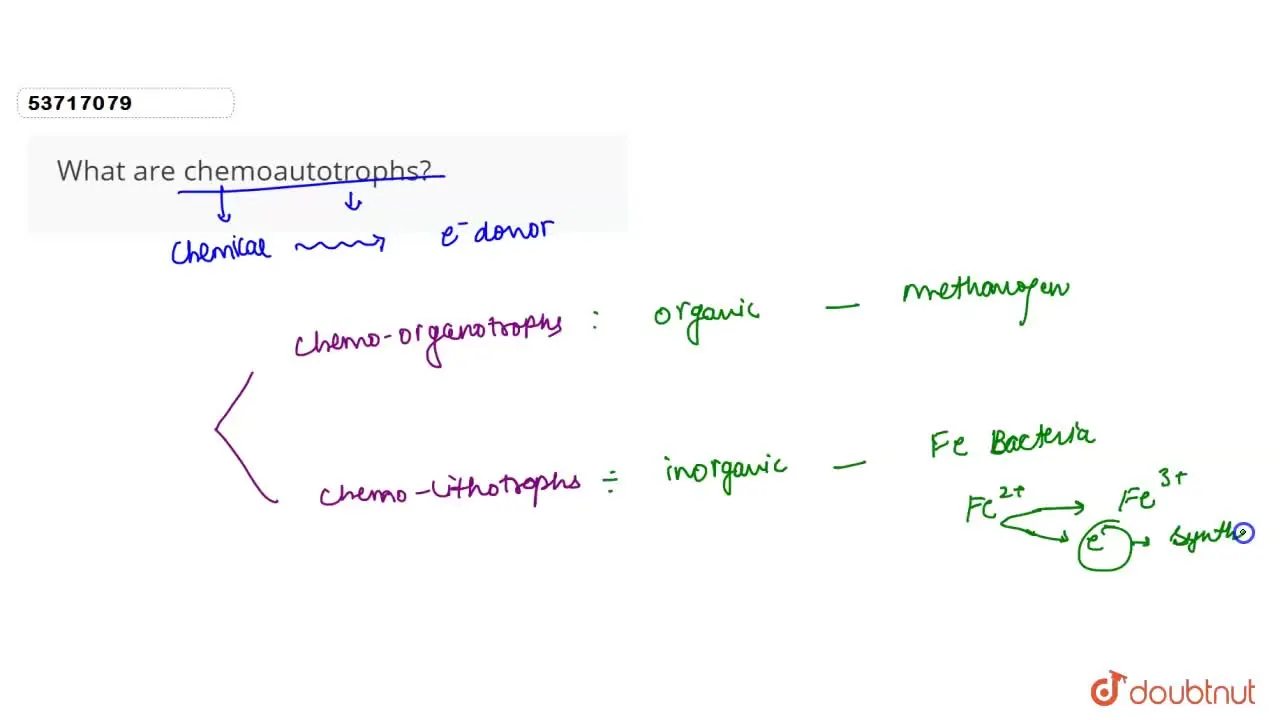 53717079
What are chemoautotrophs?
Chemical e⁻ donor
Chemo-organotrophs : organic — methanogen
Chemo-Lithotrophs ÷ inorganic — Fe Bacteria
Fe²⁺ Fe³⁺
e⁻ → Synth
doubtnut